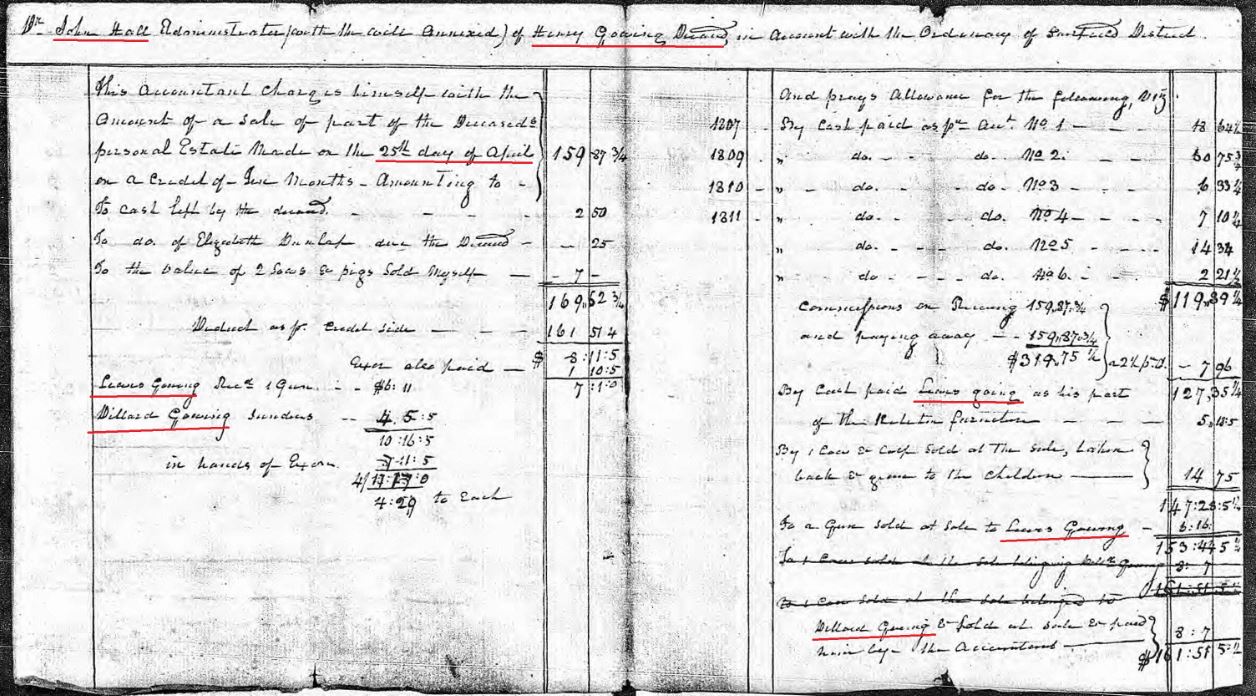 Dr. John Hall Administrator (with the will Annexed) of Henry Gowing Deceasd, in Account with the Ordinary of District.
This Accountant Charges himself with the
Amount of a Sale of part of the Deceaseds
personal Estate Made on the 25th day of April
on a Credit of Months - Amounting to - 159 87 3/4
To Cash left by the deceasd - - - 2 50
To do. of Elizabeth Dunlap due the Deceasd - - 25
To the value of 2 Sows & pigs Sold Myself - 7 -
169,, 62 3/4
Deduct as pr. Credit side - - - 161 51 4
$ 8:11:5
Exor also paid - 1 10:5
Lewis Gowing 1 Gun - - $6:11 7:1:0
Dillard Gowing Sundres - - 4. 5:5
10:16:5
in hands of Exor. 7:11:5
4/
4:29 to Each
And prays Allowance for the following, Viz.
1807 - By Cash paid as pr. No. 1 - - - 18 64 1/2
1809 - " do. - - do. No 2. - - - 60 75 3/4
1810 - " do. - - do. No 3 - - - 6 33 1/2
1811 " do. - - do. No 4 - - - 7 10 1/2
" do. - - do. No 5 - - - 14 34
" do - - do. No 6. - - - 2 21 1/2
$119,,39 1/4
Commissions on Receiving 159,87,3/4
and paying away - - 159,,87.3/4
$319,,75 1/2 2 1/2 p.Ct. - 7 96
127,35 1/4
By Cash paid Lewis going as his part
of the furniture - - - 5,,18:5
By 1 Cow & Calf Sold at the Sale, taken
back & given to the Children - - - 14 75
147:28:5 1/4
To a Gun Sold at Sale to Lewis Gowing - 6:16:
153:44 5 1/4
To 1 Cow sold at the Sale belonging Gowing 8: 7
To 1 Cow Sold at the Sale belonged to
Dillard Gowing & Sold at Sale & paid
him by the Accountant - 8:7
$161:51 5 1/4